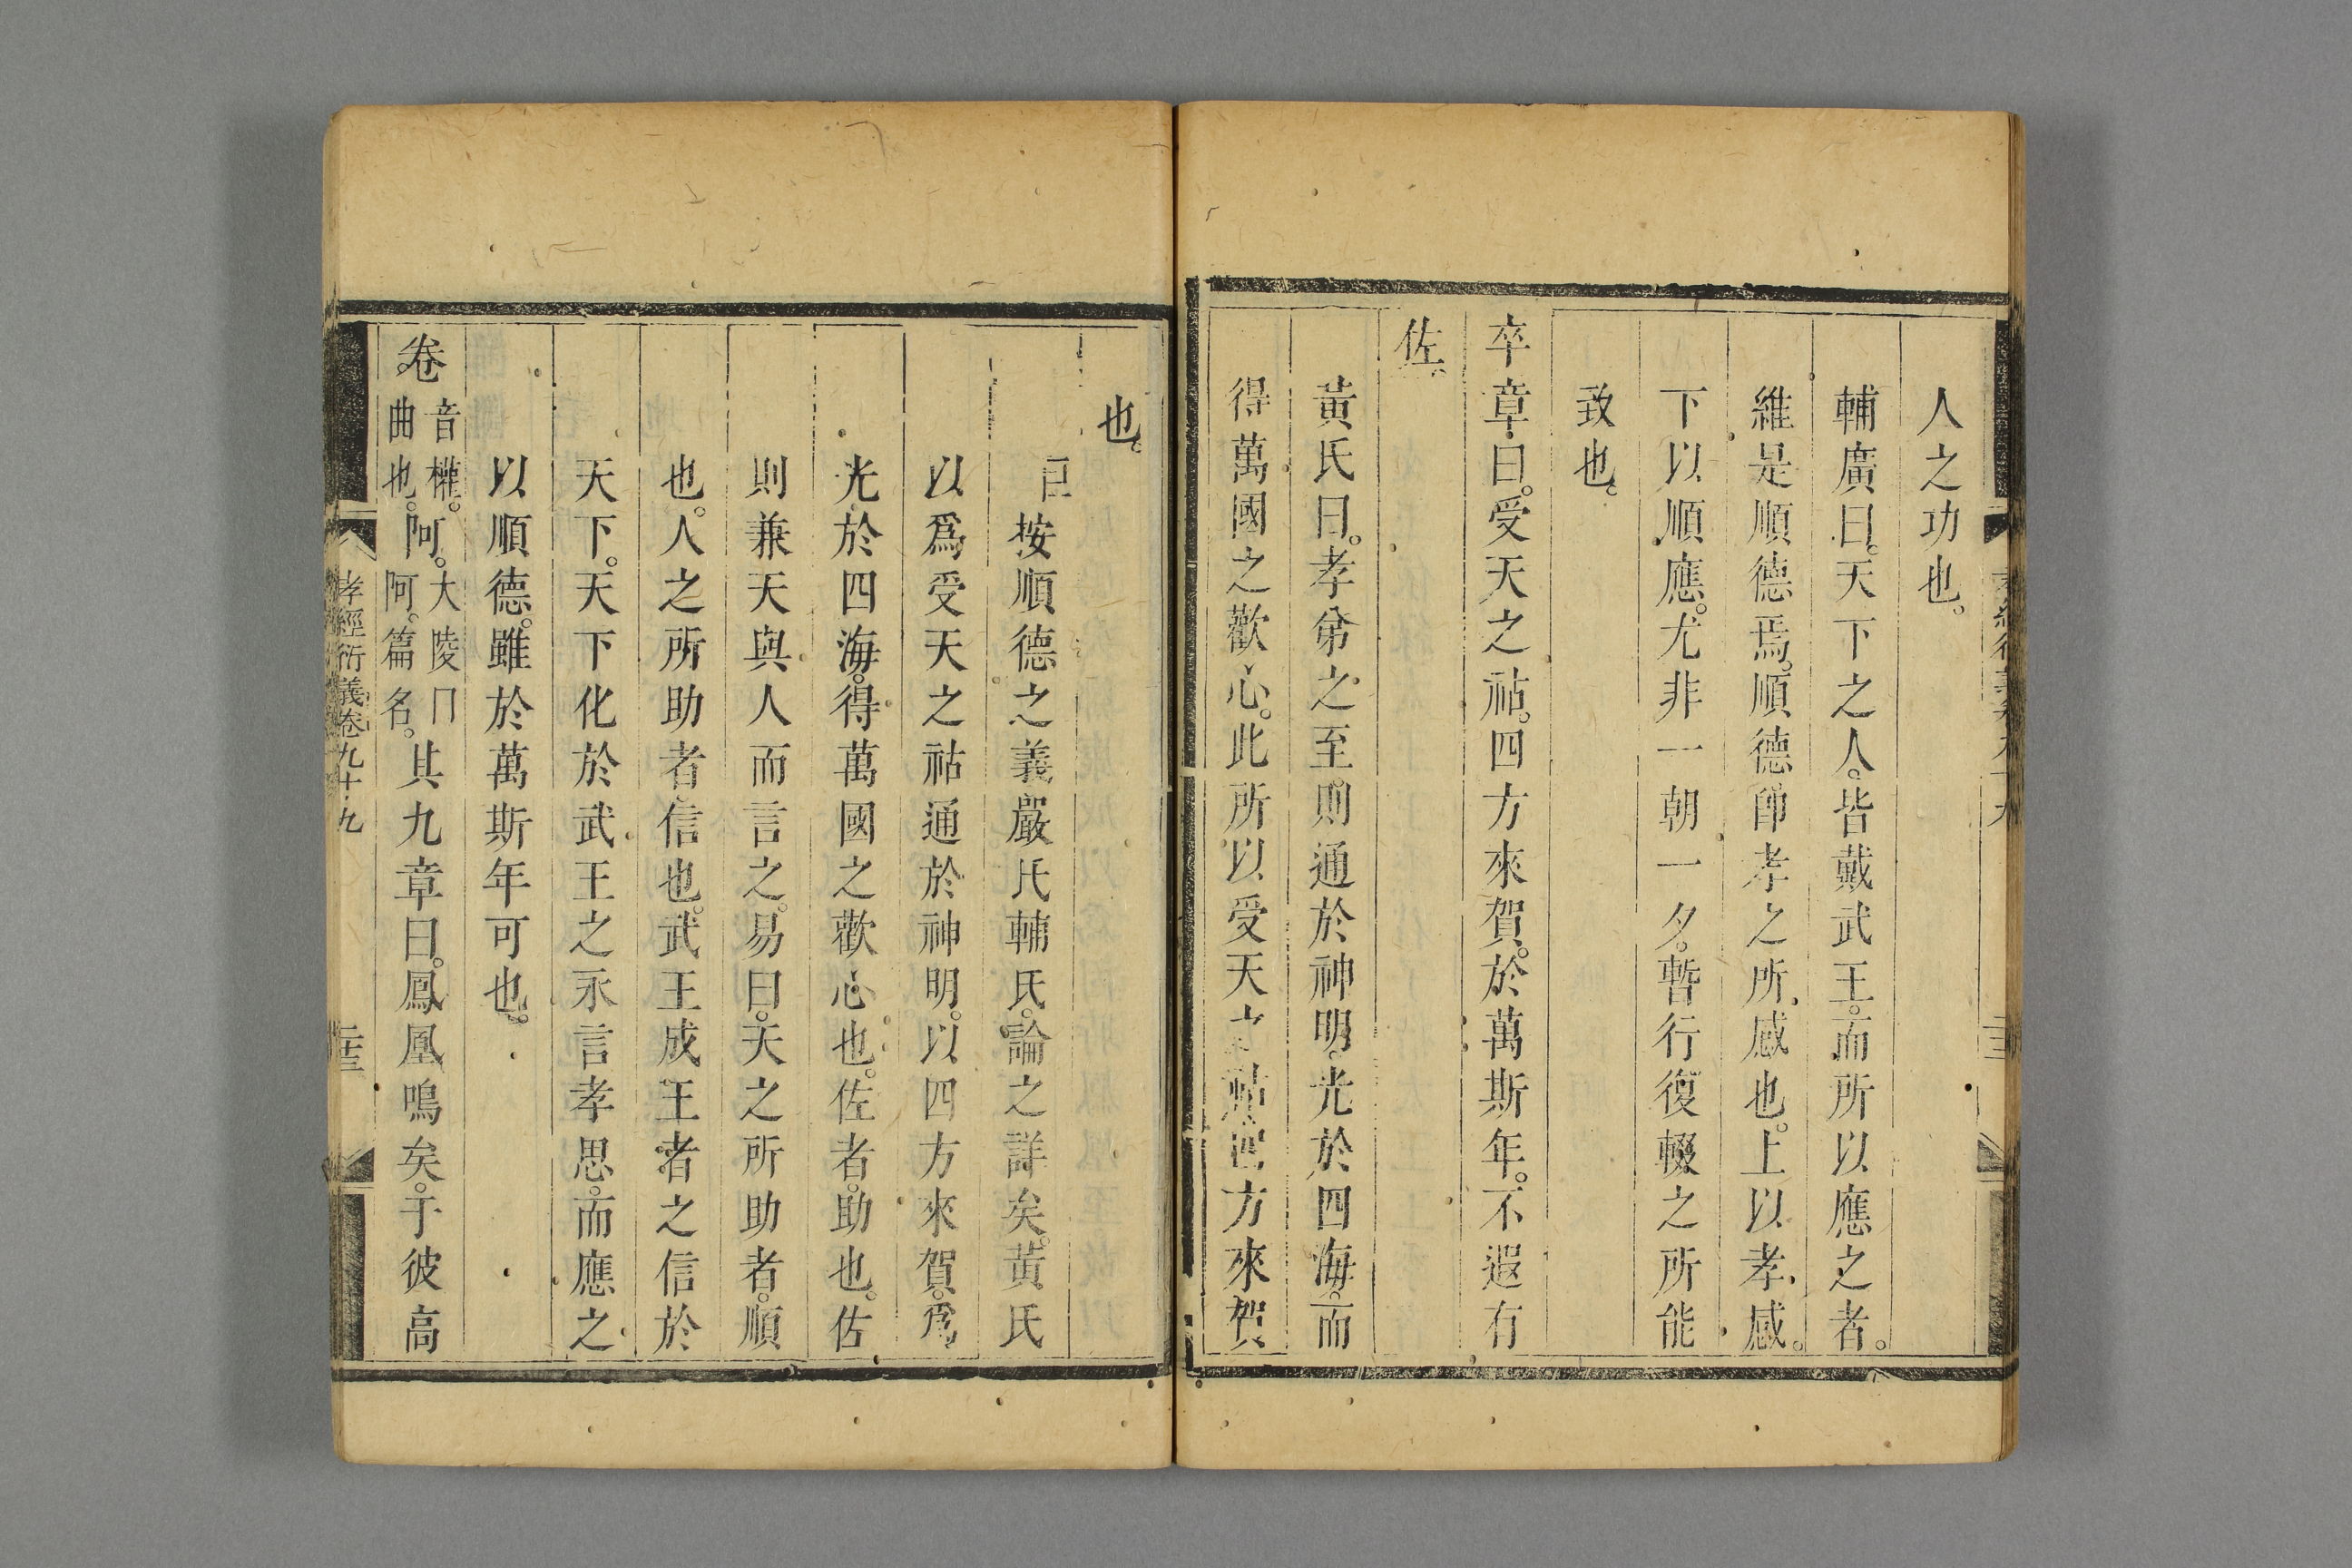 人之功也。
輔廣曰。天下之人。皆戴武王。而所以應之者。
維是順德焉。順德即孝之所感也。上以孝感。
下以順應。尤非一朝一夕。暫行復輟之所能
致也。
卒章曰。受天之祜。四方來賀。於萬斯年。不遐有
佐。
黃氏曰。孝弟之至則通於神明。光於四海。而
得萬國之歡心。此所以受天之祜四方來賀
也。
臣按順德之義嚴氏輔氏。論之詳矣。黃氏
以爲受天之祜通於神明。以四方來賀。爲
光於四海。得萬國之歡心也。佐者。助也。佐
則兼天與人而言之。易曰。天之所助者。順
也。人之所助者信也。武王成王者之信於
天下。天下化於武王之永言孝思。而應之
以順德。雖於萬斯年可也。
卷音權。曲也。阿。大陵曰阿。篇名。其九章曰。鳳凰鳴矣。于彼高
孝經衍義卷九十九